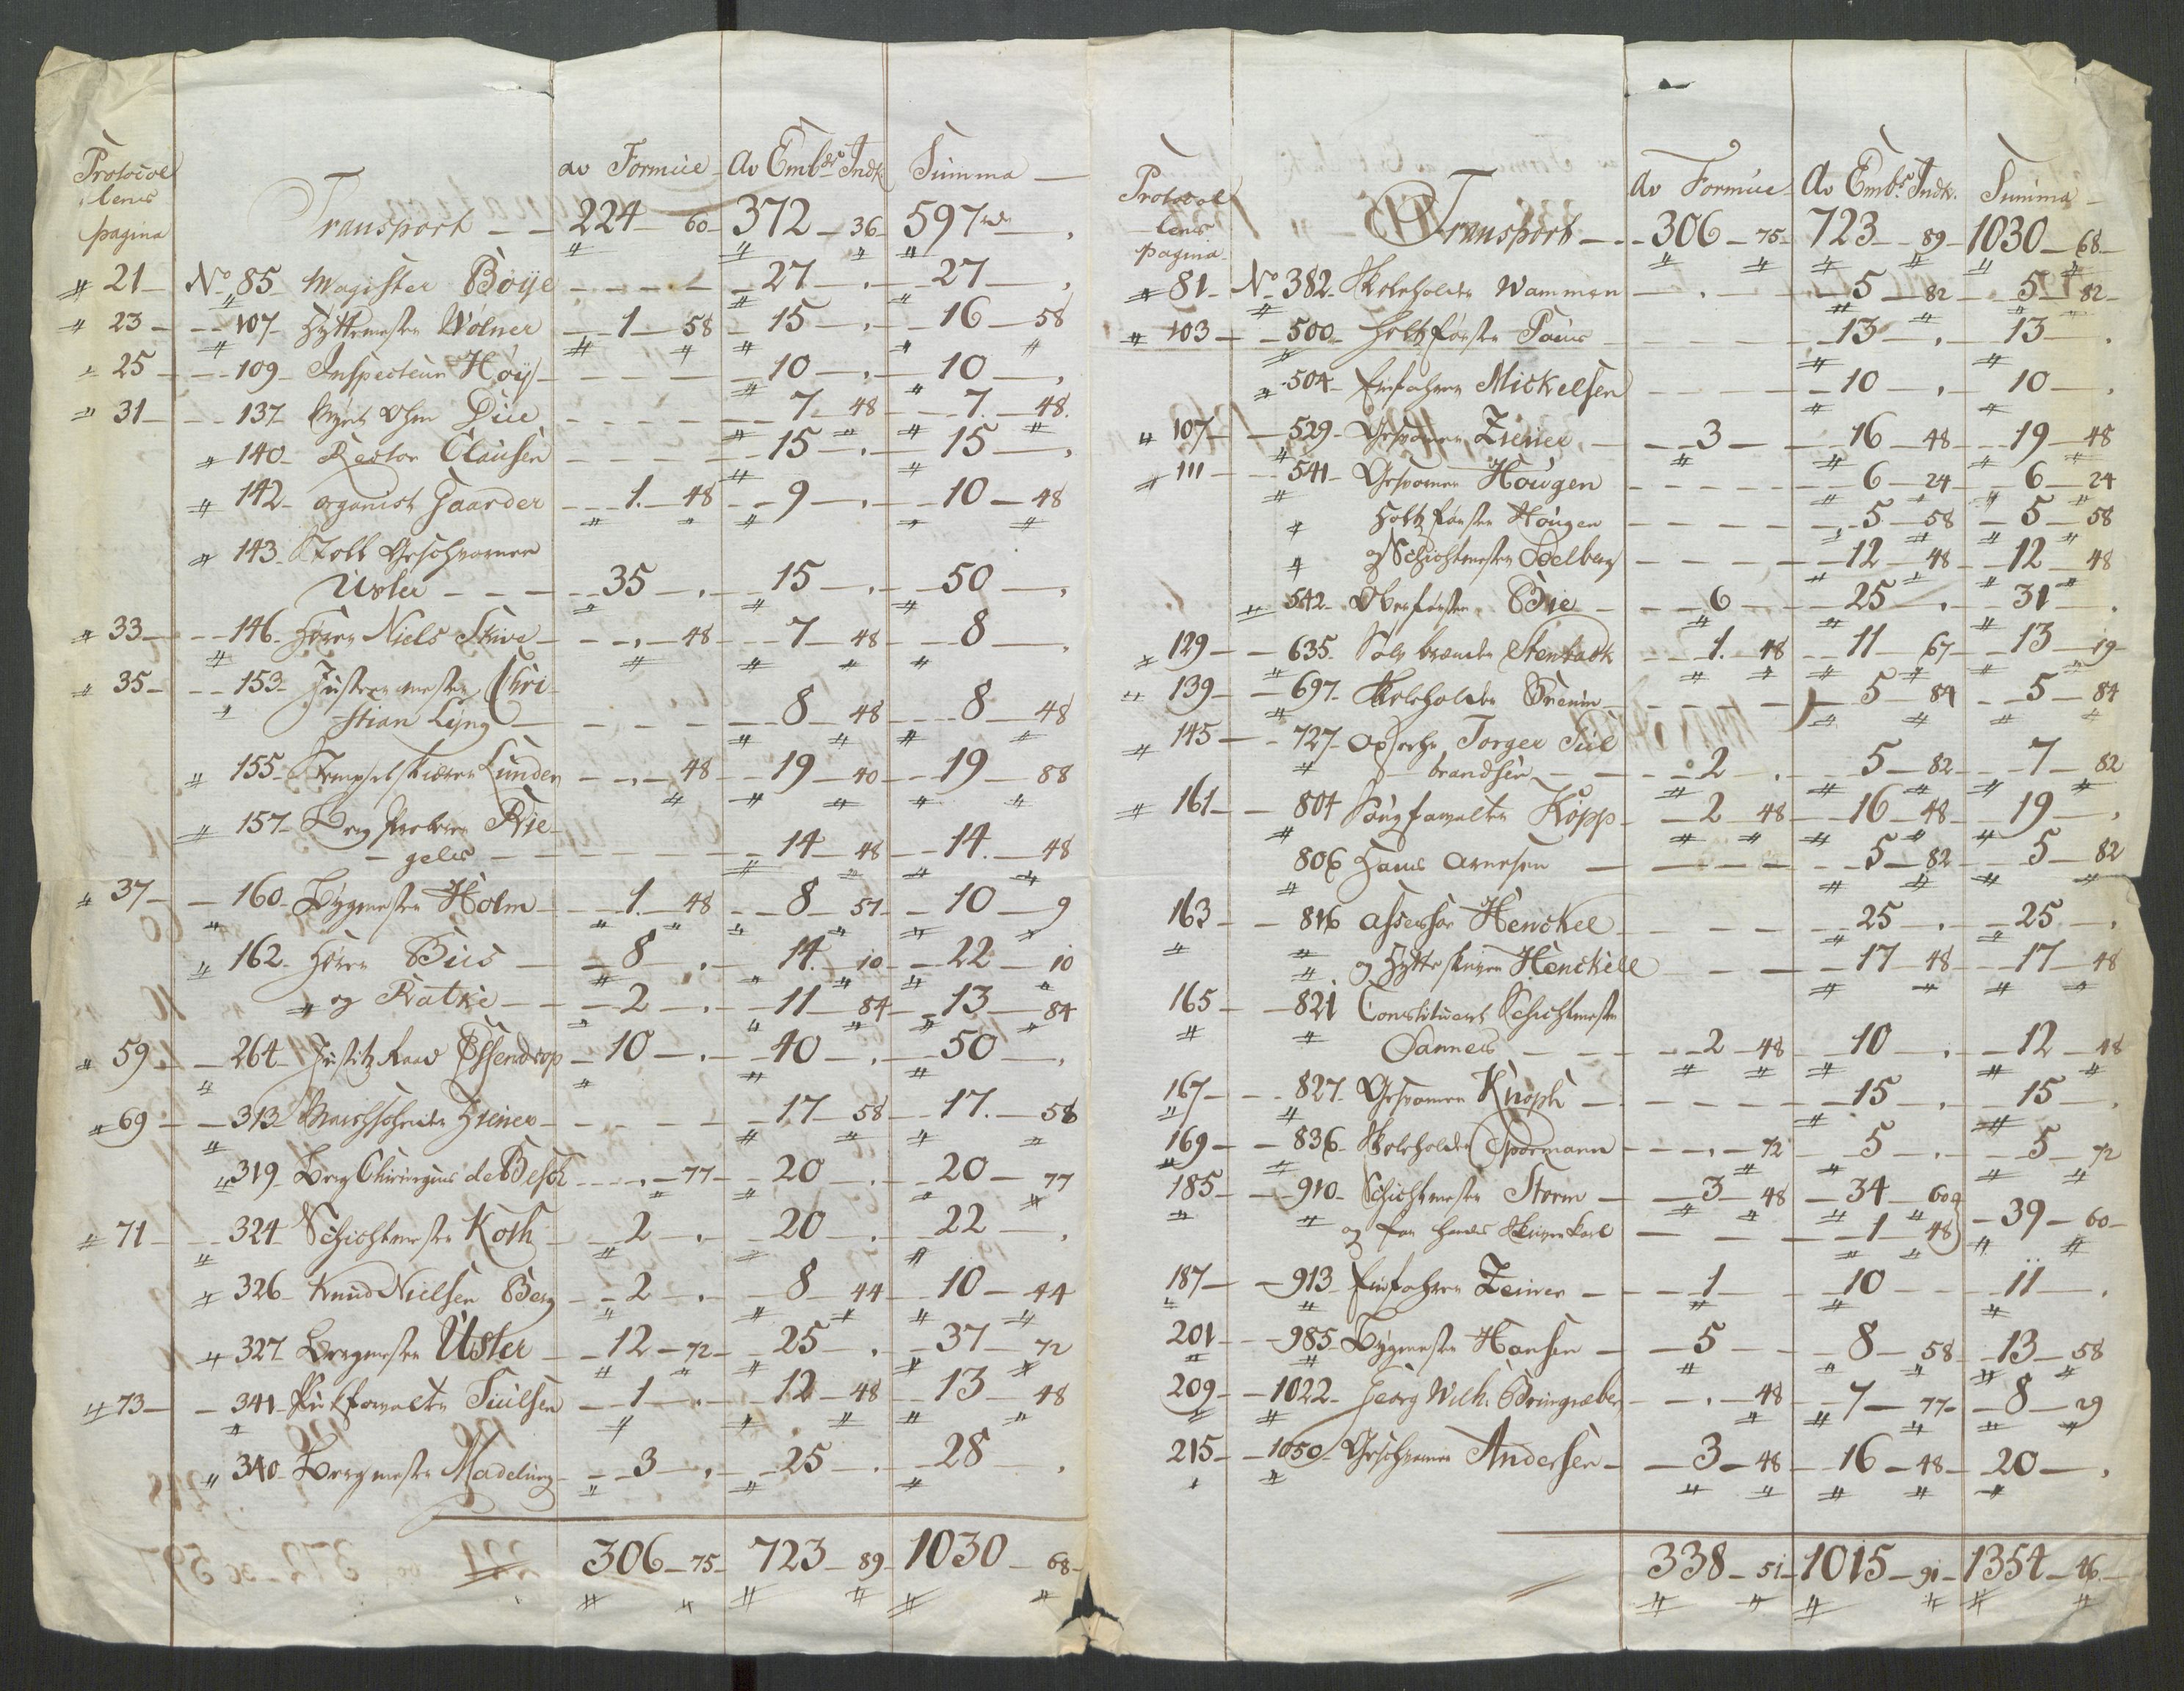 Protocol lens pagina | | av Formue | Av Embds Indk. | Summa
Transport | 224 60 | 372 36 | 597 rd
21 No 85 Magister Böÿe | | 27 | 27
23 107 Hyttemester Wolner | 1 58 | 15 | 16 58
25 109 Inspecteur Höÿ | | 10 | 10
31 137 Due | | 7 48 | 7 48
140 Rector Clausen | | 15 | 15
142 organist Gaarder | 1 48 | 9 | 10 48
143 Stoll Geschworner
Uster | 35 | 15 | 50
33 146 Herr Niels Skive | 48 | 7 48 | 8
35 153 Justeermester Chri-
stian Lÿng | | 8 48 | 8 48
155 Stempelskiærer Lunder | 48 | 19 40 | 19 88
157 Berg Probeer Rie-
gels | | 14 48 | 14 48
37 160 Bÿgmester Holm | 1 48 | 8 57 | 10 9
162 Herr Bus | 8 | 14 10 | 22 10
og Ratke | 2 | 11 84 | 13 84
59 264 Justitz Raad Essendrop | 10 | 40 | 50
69 313 Markscheider Ziener | | 17 58 | 17 58
319 Berg Chirurgus de Besch | 77 | 20 | 20 77
71 324 Schichtmester Koth | 2 | 20 | 22
326 Knud Nielsen Berg | 2 | 8 44 | 10 44
327 Bergmester Uster | 12 72 | 25 | 37 72
73 341 Pukforvalter Juulsen | 1 | 12 48 | 13 48
340 Bergmester Madelung | 3 | 25 | 28
306 75 | 723 89 | 1030 68
Protocol lens pagina | | Av Formue | Av Embds Indk. | Summa
Transport | 306 75 | 723 89 | 1030 68
81 No 382 Skoleholder Wammen | | 5 82 | 5 82
103 500 Holtzførster Paus | | 13 | 13
504 Einfahrer Mickelsen | | 10 | 10
107 529 Gesvorner Ziener | 3 | 16 48 | 19 48
111 541 Gesvorner Hougen | | 6 24 | 6 24
Holtzførster Hougen | | 5 58 | 5 58
og Schichtmester Soelberg | | 12 48 | 12 48
542 Oberførster Bie | 6 | 25 | 31
129 635 Sølv brænder Stenback | 1 48 | 11 67 | 13 19
139 697 Skoleholder | | 5 84 | 5 84
145 727 Opseeher Torger Gul
brandsen | 2 | 5 82 | 7 82
161 804 Saugforvalter Kopp | 2 48 | 16 48 | 19
806 Hans Arnesen | | 5 82 | 5 82
163 816 Assessor Henckel | | 25 | 25
og Hytteskriver Henckell | | 17 48 | 17 48
165 821 Constitueret Schichtmester
Sannes | 2 48 | 10 | 12 48
167 827 Gesvorner Knoph | | 15 | 15
169 836 Skoleholder Spormann | 72 | 5 | 5 72
185 910 Schichtmester Storm | 3 48 | 34 60
og for hands Skriverkarl | | 1 48 | 39 60
187 913 Einfahrer Zeiner | 1 | 10 | 11
201 985 Bÿgmester Hansen | 5 | 8 58 | 13 58
209 1022 Georg Wilh. Bringræber | 48 | 7 77 | 8 29
215 1050 Geschworner Andersen | 3 48 | 16 48 | 20
338 51 | 1015 91 | 1354 46